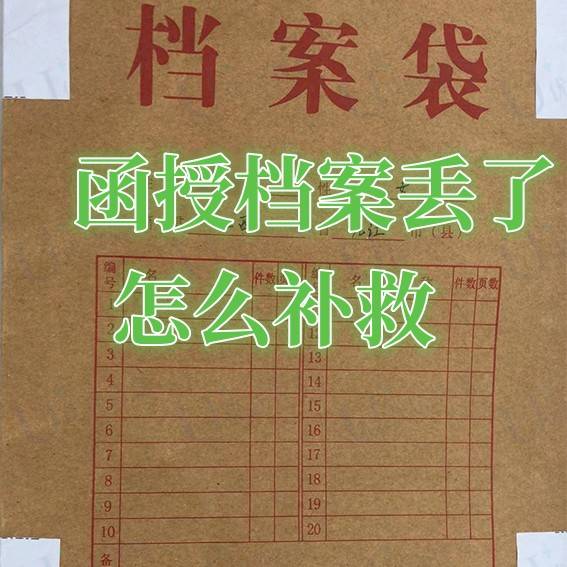 档案袋
函授档案丢了
性 女
市(县)
怎么补救
编号 名 件数 名 件数 页数
1
2
3 13
4 14
5 15
6 16
7 17
8 18
9 19
10 20
备